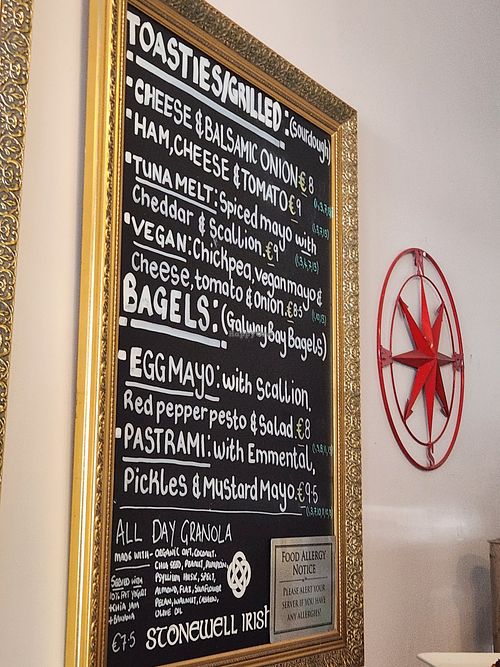 TOASTIES/GRILLED: (Sourdough)
• CHEESE & BALSAMIC ONION €8
• HAM, CHEESE & TOMATO €9
• TUNA MELT: Spiced mayo with
Cheddar & Scallion. €9
• VEGAN: Chickpea, vegan mayo &
Cheese, tomato & onion. €8.5
BAGELS: (Galway Bay Bagels)
• EGG MAYO: with Scallion,
Red pepper pesto & Salad. €8
• PASTRAMI: with Emmental,
Pickles & Mustard Mayo. €9.5
ALL DAY GRANOLA
MADE WITH - ORGANIC OAT, COCONUT,
CHIA SEED, PEANUT, PUMPKIN,
PSYLLIUM HUSK, SPELT,
ALMOND, FLAX, SUNFLOWER
PECAN, WALNUT, CASHEW,
OLIVE OIL
SERVED WITH
0% FAT YOGURT
+ CHIA JAM
+ BANANA
€7.5
STONEWELL IRISH
FOOD ALLERGY
NOTICE
PLEASE ALERT YOUR
SERVER IF YOU HAVE
ANY ALLERGIES!